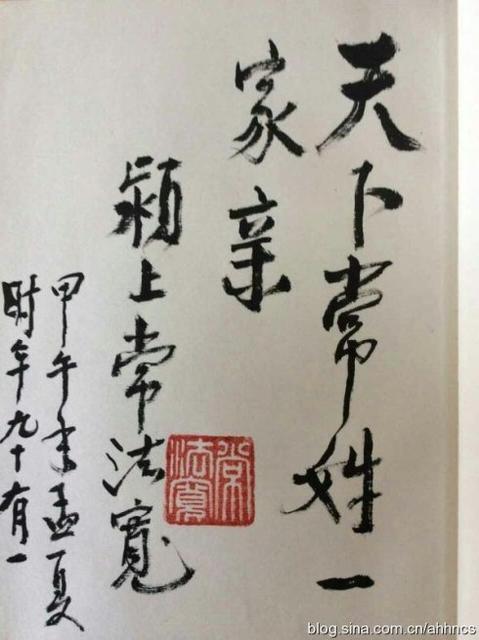 天下常姓一
家亲
颍上常法寬
甲午年孟夏
时年九十有一
常法寬
blog.sina.com.cn/ahhncs